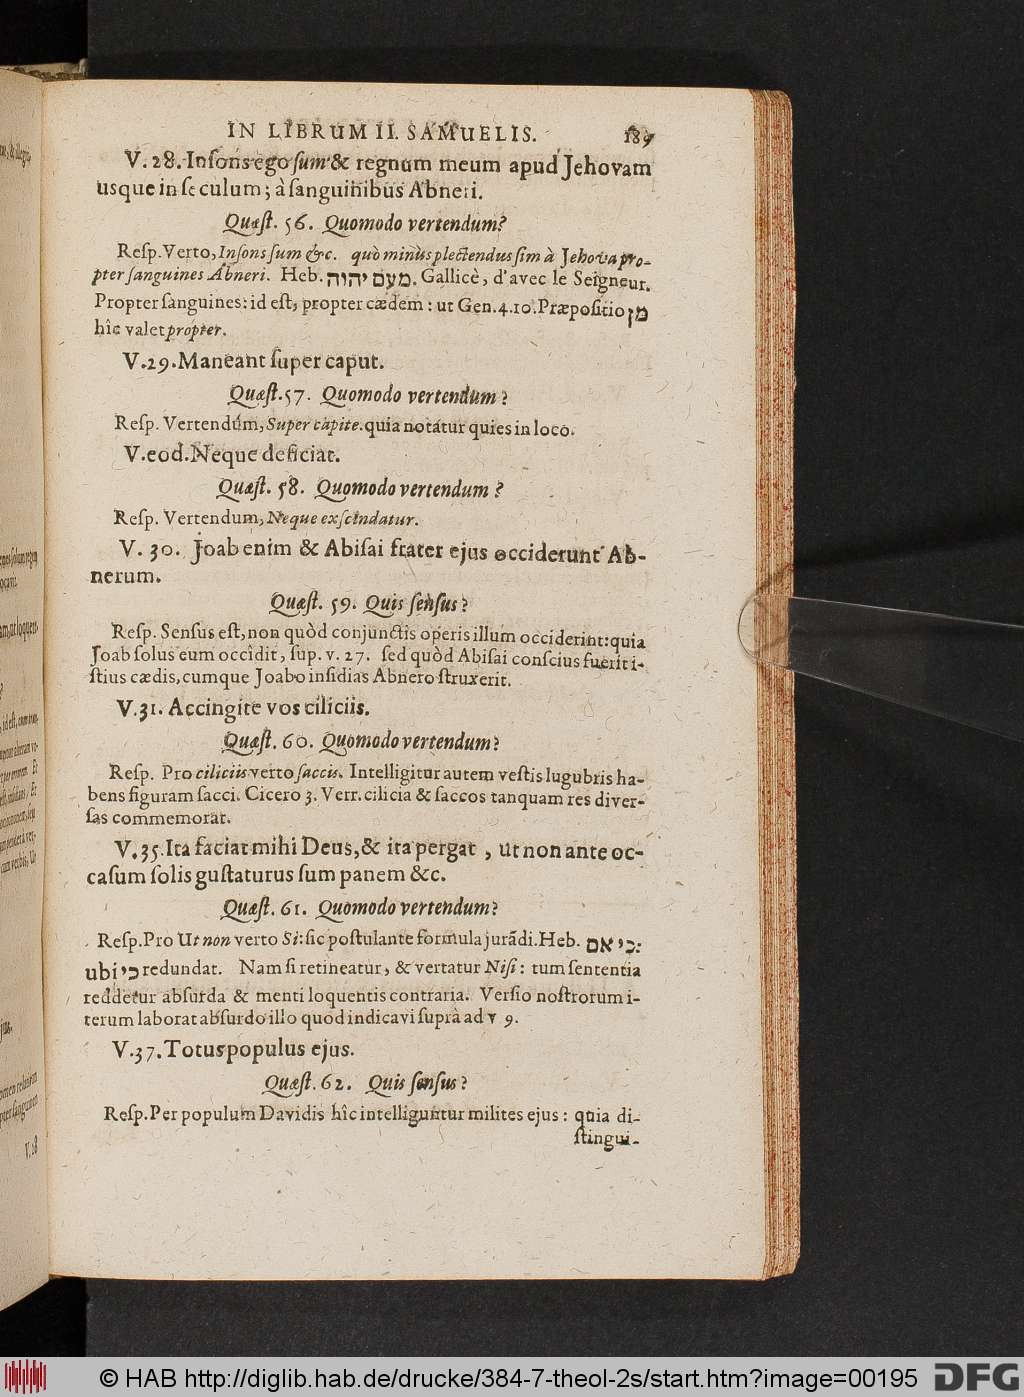 IN LIBRUM II. SAMUELIS. 189
V. 28. Insons ego sum & regnum meum apud Jehovam
usque in seculum; à sanguinibus Abneri.
Quæst. 56. Quomodo vertendum?
Resp. Verto, Insons sum &c. quò minùs plectendus sim à Jehova pro-
pter sanguines Abneri. Heb. מעם יהוה. Gallicè, d'avec le Seigneur.
Propter sanguines: id est, propter cædem: ut Gen. 4. 10. Præpositio מן
hîc valet propter.
V. 29. Maneant super caput.
Quæst. 57. Quomodo vertendum?
Resp. Vertendum, Super capite. quia notatur quies in loco.
V. eod. Neque deficiat.
Quæst. 58. Quomodo vertendum?
Resp. Vertendum, Neque exscindatur.
V. 30. Joab enim & Abisai frater ejus occiderunt Ab-
nerum.
Quæst. 59. Quis sensus?
Resp. Sensus est, non quòd conjunctis operis illum occiderint: quia
Joab solus eum occîdit, sup. v. 27. sed quòd Abisai conscius fuerit i-
stius cædis, cumque Joabo insidias Abnero struxerit.
V. 31. Accingite vos ciliciis.
Quæst. 60. Quomodo vertendum?
Resp. Pro ciliciis verto saccis. Intelligitur autem vestis lugubris ha-
bens figuram sacci. Cicero 3. Verr. cilicia & saccos tanquam res diver-
sas commemorat.
V. 35. Ita faciat mihi Deus, & ita pergat, ut non ante oc-
casum solis gustaturus sum panem &c.
Quæst. 61. Quomodo vertendum?
Resp. Pro Ut non verto Si: sic postulante formula jurãdi. Heb. כי אם:
ubi כי redundat. Nam si retineatur, & vertatur Nisi: tum sententia
reddetur absurda & menti loquentis contraria. Versio nostrorum i-
terum laborat absurdo illo quod indicavi suprà ad v 9.
V. 37. Totus populus ejus.
Quæst. 62. Quis sensus?
Resp. Per populum Davidis hîc intelliguntur milites ejus: quia di-
stingui-
© HAB http://diglib.hab.de/drucke/384-7-theol-2s/start.htm?image=00195 DFG